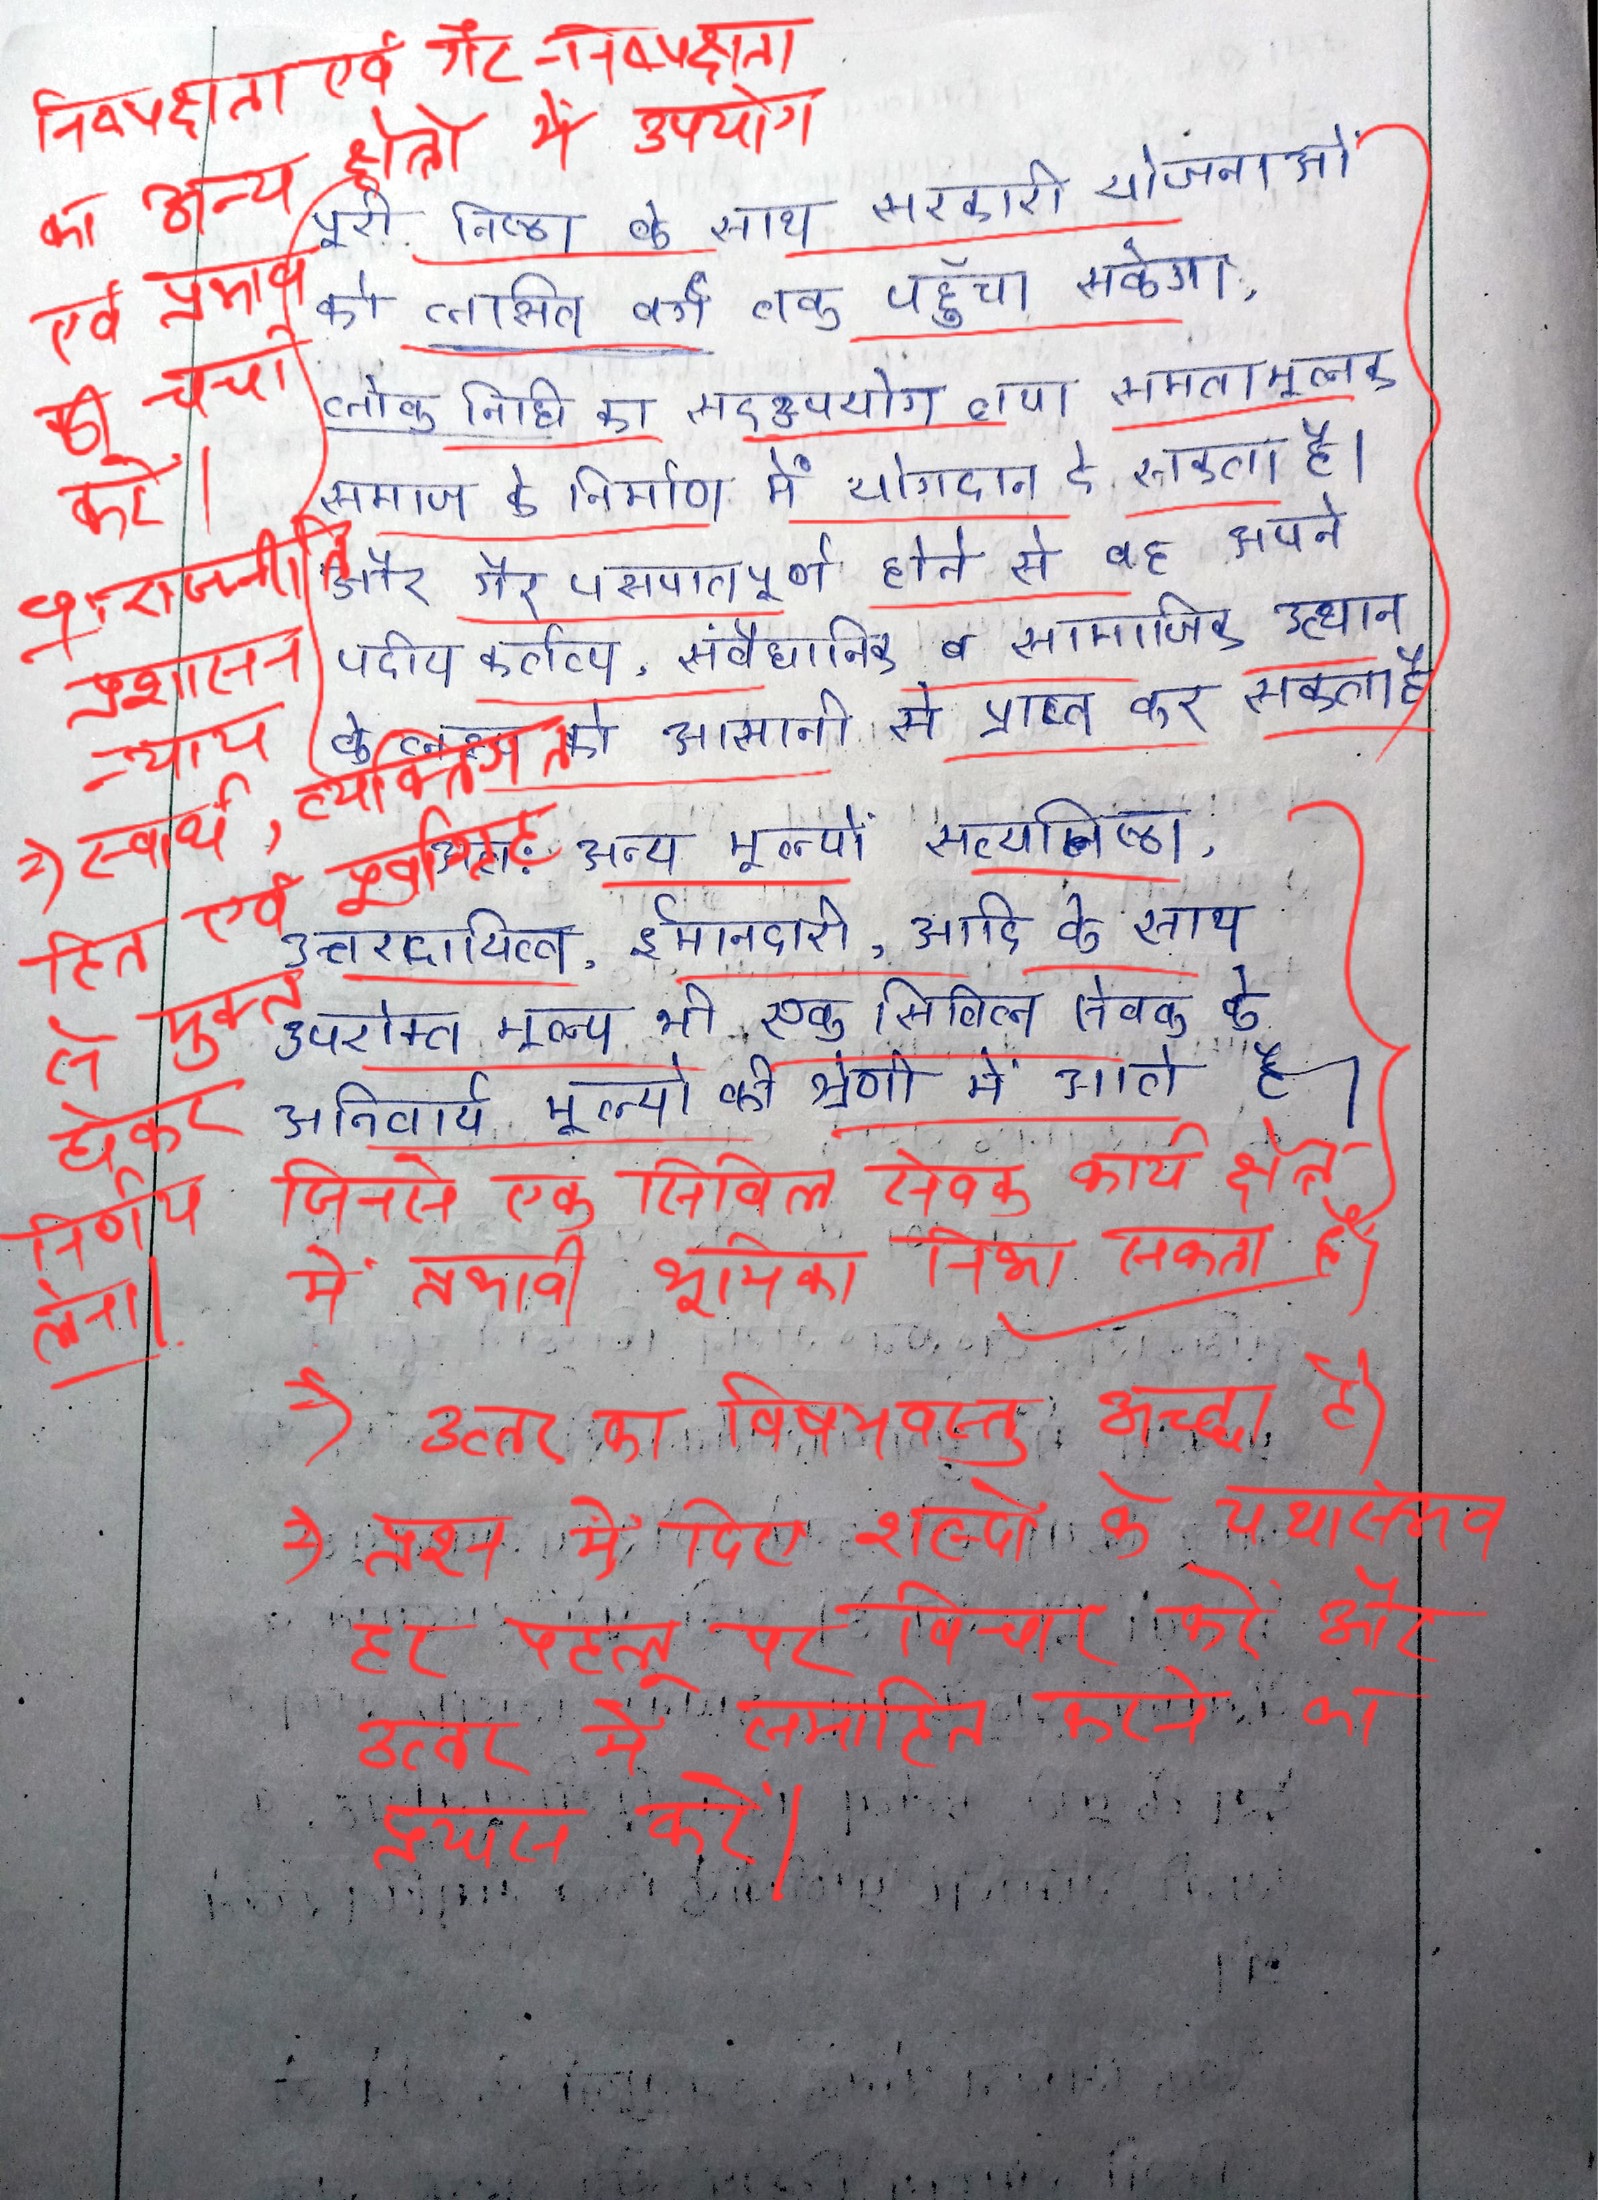 निष्पक्षता एवं गैर-निष्पक्षता
का अन्य क्षेत्रों में उपयोग
एवं प्रभाव
की चर्चा
करें।
राजनीति
प्रशासन
न्याय
2) स्वार्थ, व्यक्तिगत
हित एवं पूर्वाग्रह
से मुक्त
होकर
निर्णय
लेना।
पूरी निष्ठा के साथ सरकारी योजनाओं
को लक्षित वर्ग तक पहुँचा सकेगा,
लोक निधि का सदउपयोग तथा समतामूलक
समाज के निर्माण में योगदान दे सकता है।
और गैर पक्षपातपूर्ण होने से वह अपने
पदीय कर्तव्य, संवैधानिक व सामाजिक उत्थान
के लक्ष्य को आसानी से प्राप्त कर सकता है
अतः अन्य मूल्यों सत्यनिष्ठा,
उत्तरदायित्व, ईमानदारी, आदि के साथ
उपरोक्त मूल्य भी एक सिविल सेवक के
अनिवार्य मूल्यो की श्रेणी में आते है।
जिनसे एक सिविल सेवक कार्य क्षेत्र
में प्रभावी भूमिका निभा सकता है।
=) उत्तर का विषयवस्तु अच्छा है।
=) प्रश्न में दिए शब्दों के यथासंभव
हर पहलू पर विचार करें और
उत्तर में समाहित करने का
प्रयास करें।